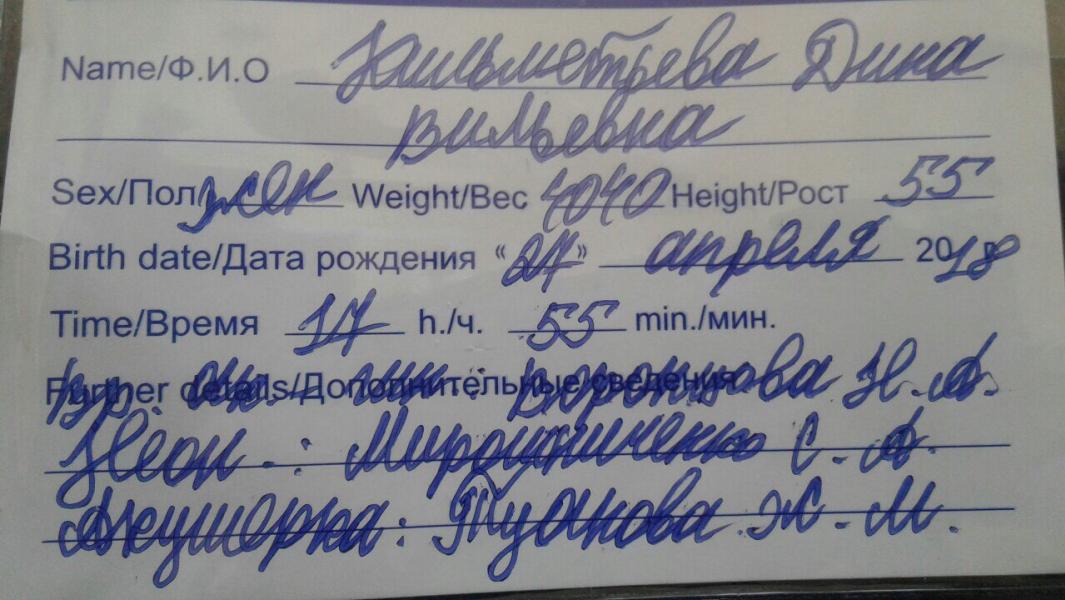 Name/Ф.И.О Кильметьева Дина
Вильевна
Sex/Пол жен Weight/Вес 4040 Height/Рост 55
Birth date/Дата рождения «27» апреля 2018
Time/Время 17 h./ч. 55 min./мин.
Further details/Дополнительные сведения
Вр. ак.-гин.: Воронцова Н.А.
Неон.: Мирошниченко С.А.
Акушерка: Туанова Ж.М.